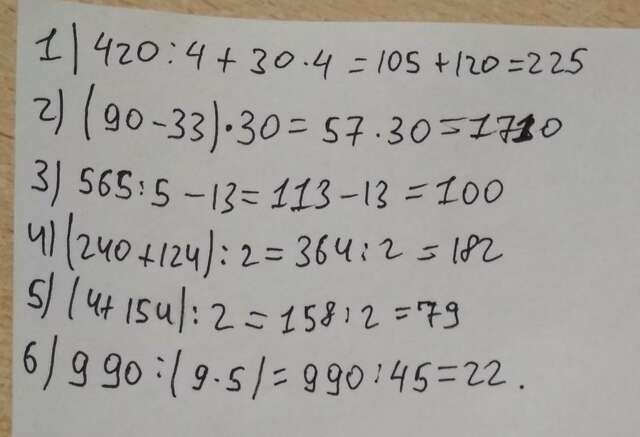 1) 420:4+30·4=105+120=225
2) (90-33)·30=57·30=1710
3) 565:5-13=113-13=100
4) (240+124):2=364:2=182
5) (4+154):2=158:2=79
6) 990:(9·5)=990:45=22.